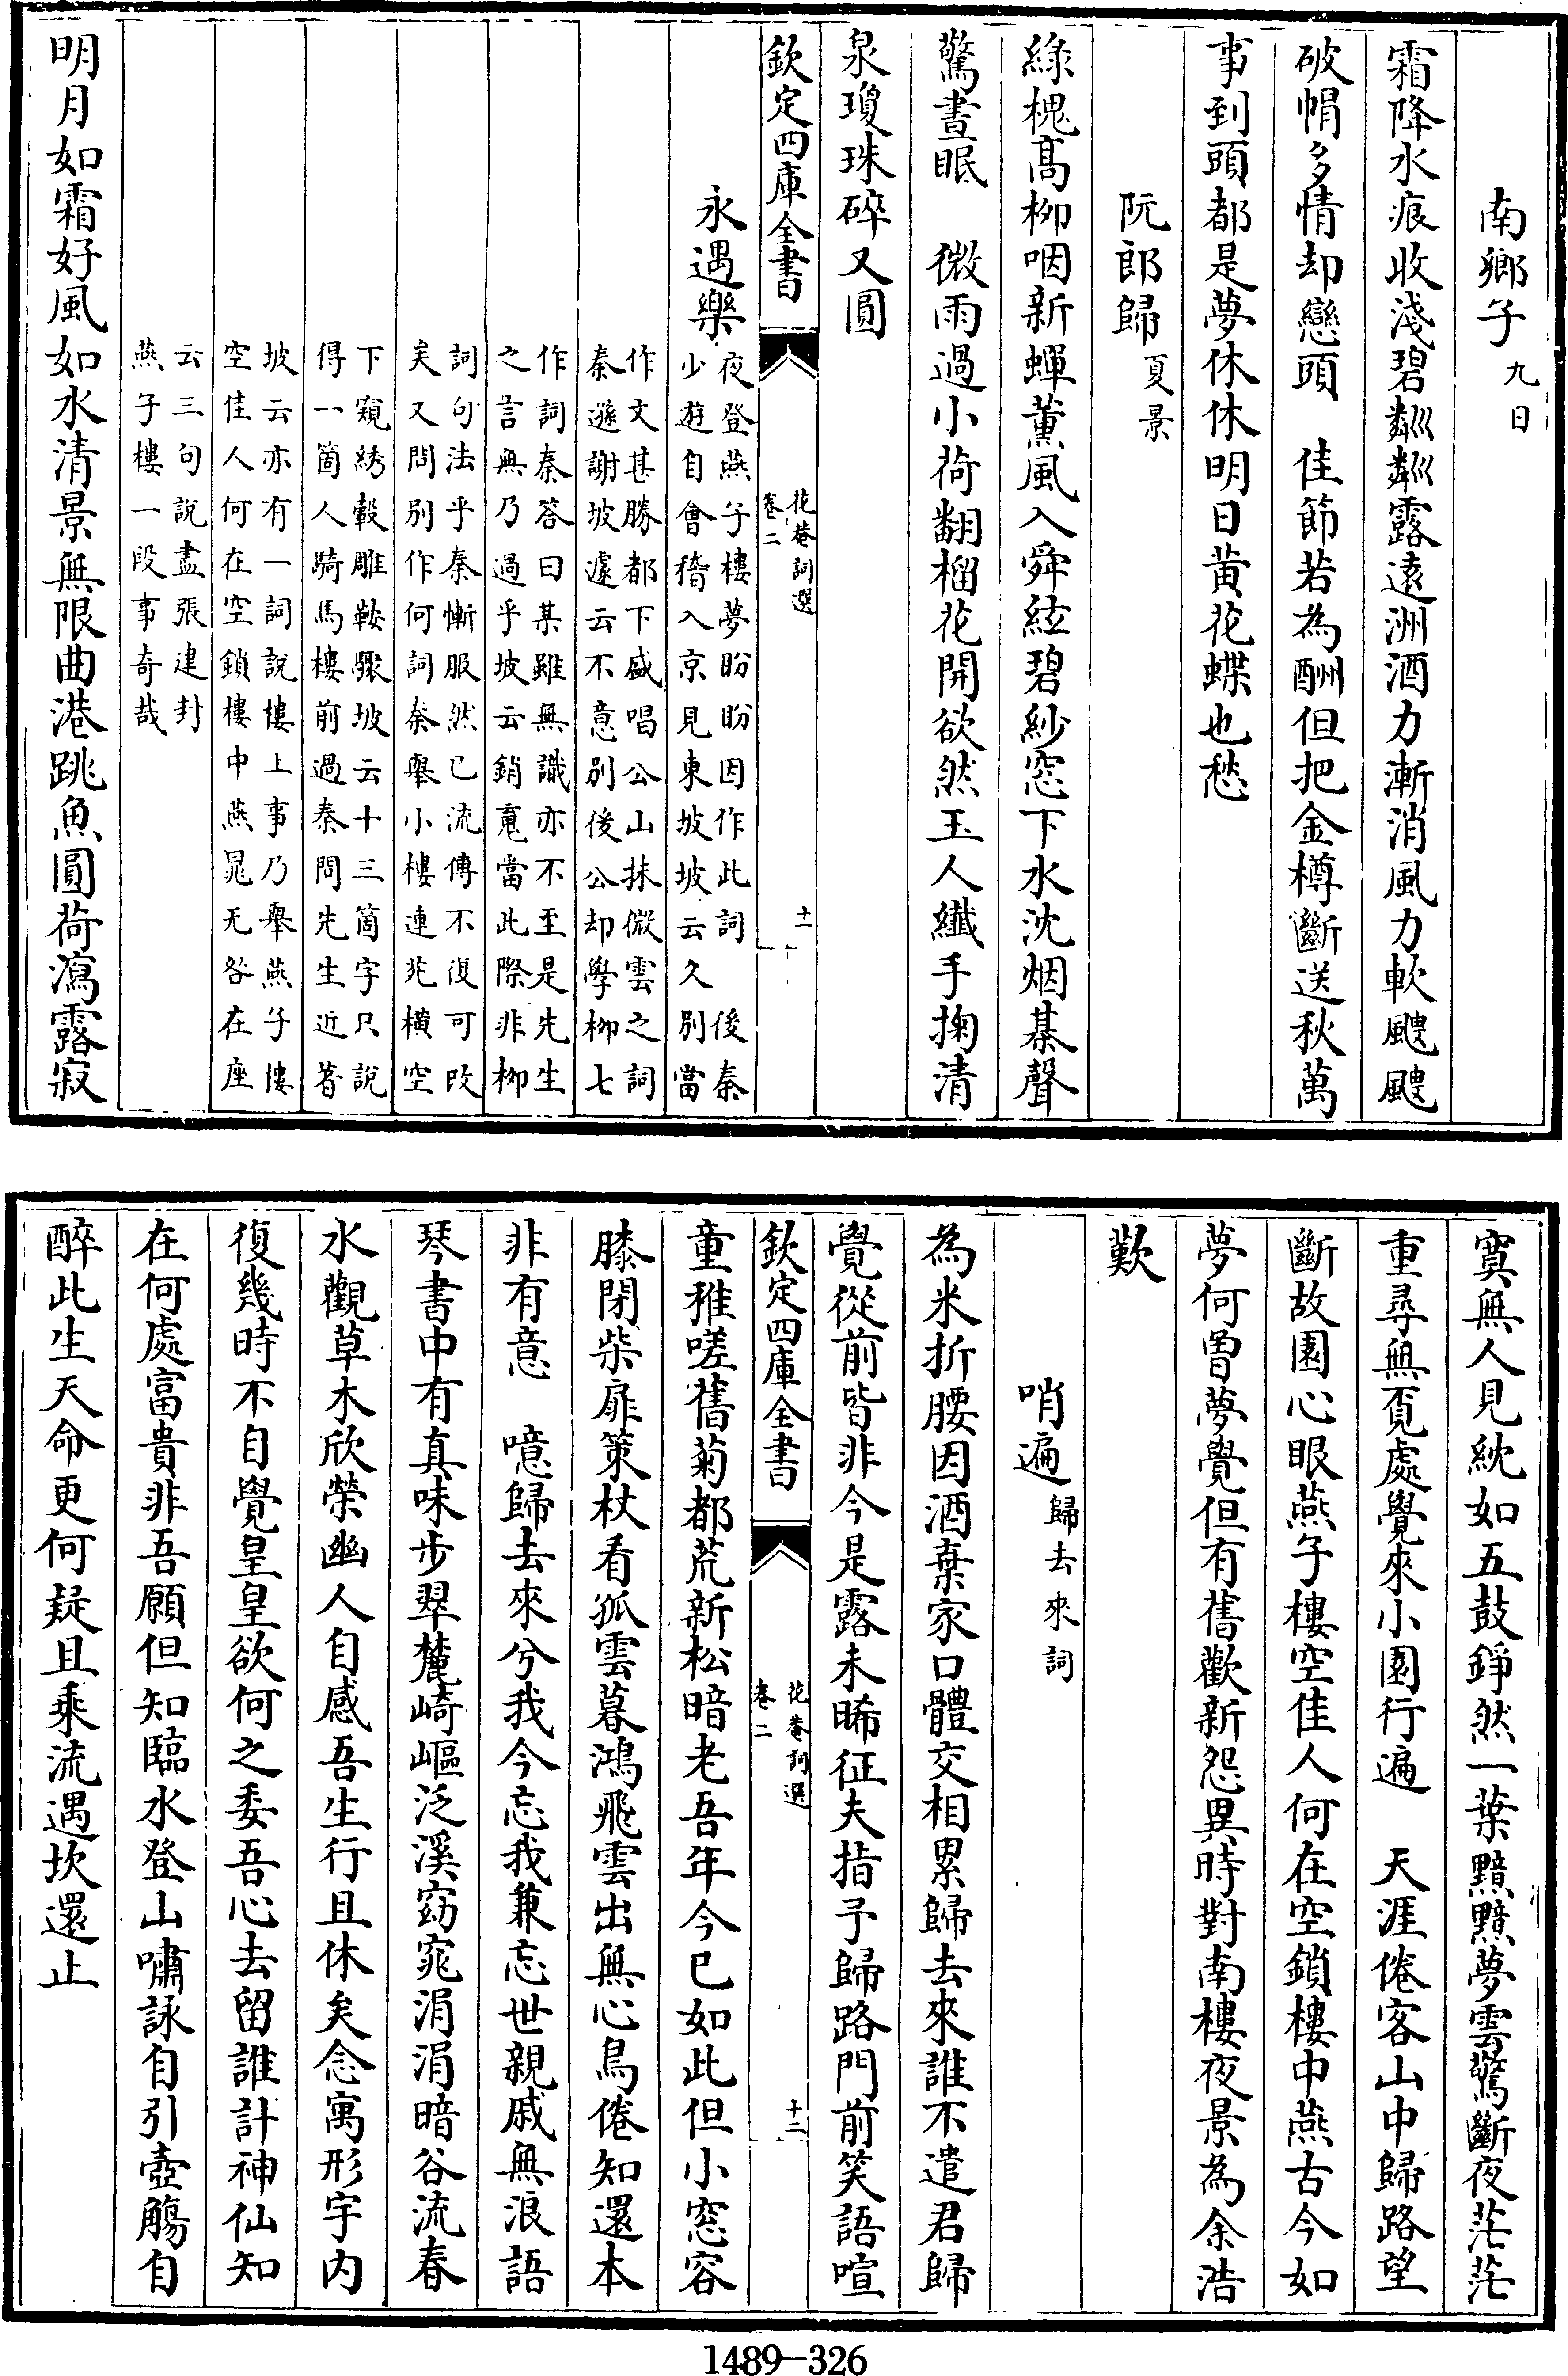 南鄉子九日
霜降水痕收淺碧粼粼露遠洲酒力漸消風力軟颼颼
破帽多情却戀頭　佳節若為酬但把金樽斷送秋萬
事到頭都是夢休休明日黃花蝶也愁
阮郎歸夏景
綠槐髙栁咽新蟬薰風入舜絃碧紗窓下水沈烟棊聲
驚晝眠　微雨過小荷翻榴花開欲然玉人纖手掬清
泉瓊珠碎又圓
欽定四庫全書
花菴詞選
卷二
十一
永遇樂
夜登燕子樓夢盼盼因作此詞　後秦
少遊自會稽入京見東坡坡云久別當
作文甚勝都下盛唱公山抹微雲之詞
秦遜謝坡遽云不意別後公却學栁七
作詞秦答曰某雖無識亦不至是先生
之言無乃過乎坡云銷䰟當此際非栁
詞句法乎秦慚服然已流傳不復可改
矣又問別作何詞秦舉小樓連苑橫空
下窺綉轂雕鞍驟坡云十三箇字只說
得一箇人騎馬樓前過秦問先生近著
坡云亦有一詞說樓上事乃舉燕子樓
空佳人何在空鎖樓中燕晁无咎在座
云三句說盡張建封
燕子樓一段事奇哉
明月如霜好風如水清景無限曲港跳魚圓荷瀉露寂
寞無人見紞如五鼓錚然一葉黯黯夢雲驚斷夜茫茫
重尋無覔處覺來小園行遍　天涯倦客山中歸路望
斷故園心眼燕子樓空佳人何在空鎖樓中燕古今如
夢何曽夢覺但有舊歡新怨異時對南樓夜景為余浩
歎
哨遍歸去來詞
為米折腰因酒棄家口體交相累歸去來誰不遣君歸
覺從前皆非今是露未晞征夫指予歸路門前笑語喧
欽定四庫全書
花菴詞選
卷二
十二
童稚嗟舊菊都荒新松暗老吾年今已如此但小窓容
膝閉柴扉策杖看孤雲暮鴻飛雲出無心鳥倦知還本
非有意　噫歸去來兮我今忘我兼忘世親戚無浪語
琴書中有真味步翠麓崎嶇泛溪窈窕涓涓暗谷流春
水觀草木欣榮幽人自感吾生行且休矣念寓形宇內
復幾時不自覺皇皇欲何之委吾心去留誰計神仙知
在何處富貴非吾願但知臨水登山嘯詠自引壺觴自
醉此生天命更何疑且乘流遇坎還止
1489-326